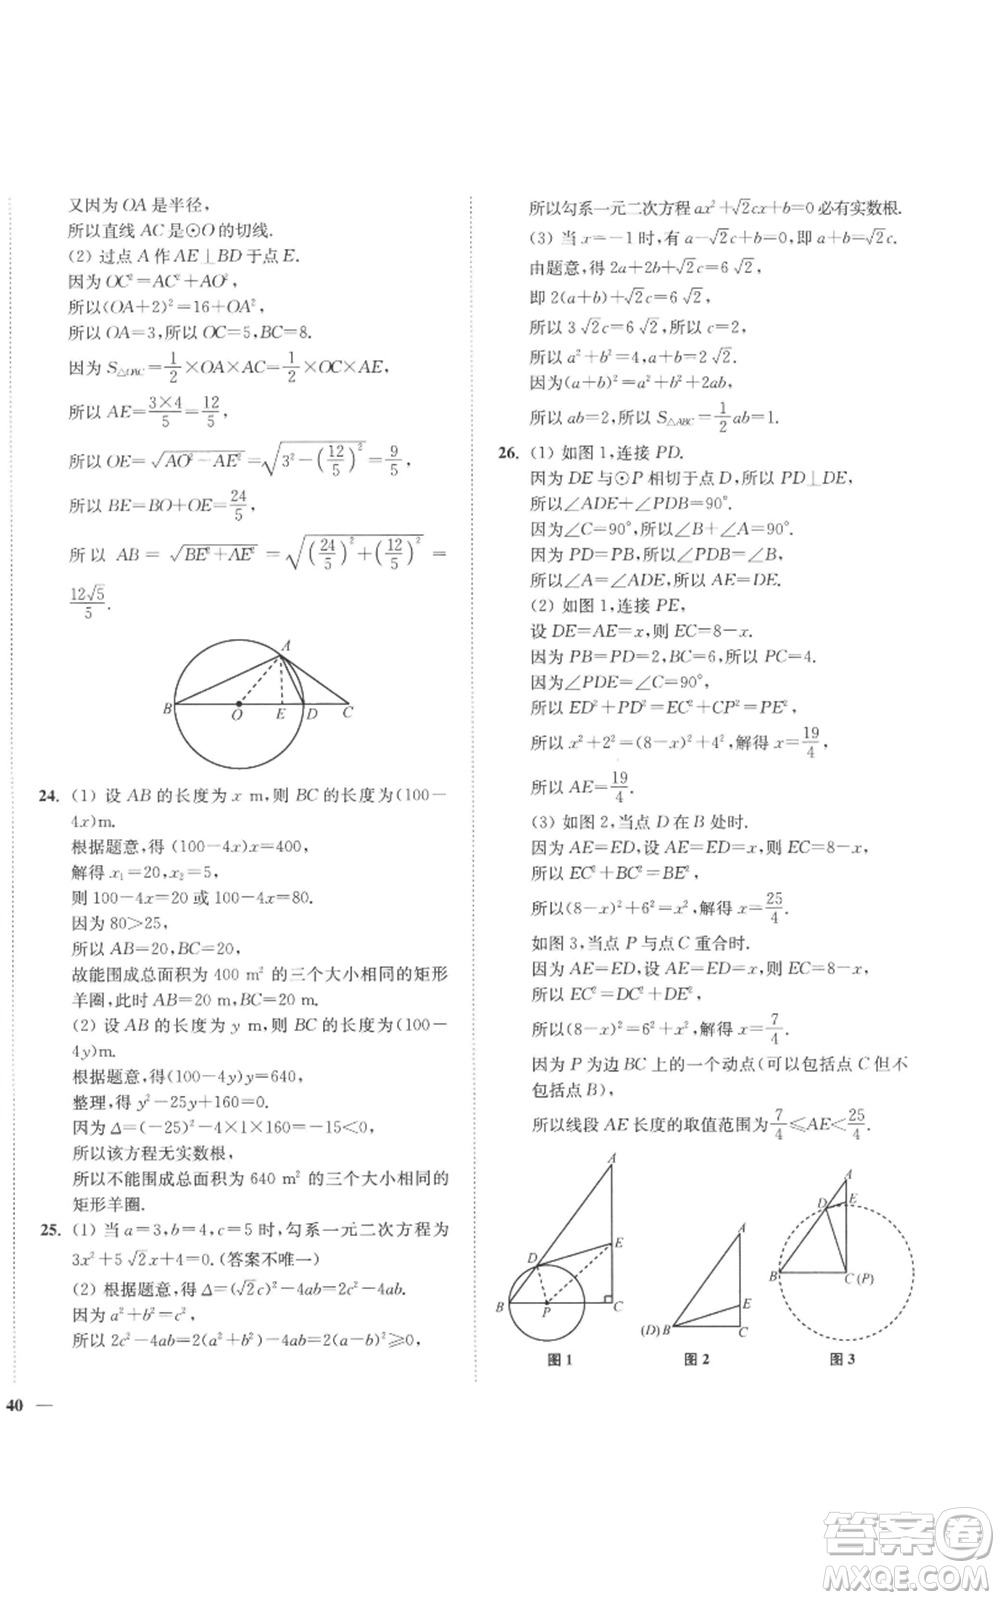 又因为 OA 是半径，
所以直线 AC 是⊙O 的切线.
（2）过点 A 作 AE⊥BD 于点 E.
因为 OC²=AC²+AO²，
所以(OA+2)²=16+OA²，
所以 OA=3，所以 OC=5，BC=8.
因为 S△OAC=1/2×OA×AC=1/2×OC×AE，
所以 AE=(3×4)/5=12/5，
所以 OE=√(AO²−AE²)=√(3²−(12/5)²)=9/5，
所以 BE=BO+OE=24/5，
所以 AB=√(BE²+AE²)=√((24/5)²+(12/5)²)=
12√5/5.
A
B O E D C
24.（1）设 AB 的长度为 x m，则 BC 的长度为(100−
4x)m.
根据题意，得 (100−4x)x=400，
解得 x₁=20，x₂=5，
则 100−4x=20 或 100−4x=80.
因为 80>25，
所以 AB=20，BC=20，
故能围成总面积为 400 m² 的三个大小相同的矩形
羊圈，此时 AB=20 m，BC=20 m.
（2）设 AB 的长度为 y m，则 BC 的长度为(100−
4y)m.
根据题意，得(100−4y)y=640，
整理，得 y²−25y+160=0.
因为 Δ=(−25)²−4×1×160=−15<0，
所以该方程无实数根，
所以不能围成总面积为 640 m² 的三个大小相同的
矩形羊圈.
25.（1）当 a=3，b=4，c=5 时，勾系一元二次方程为
3x²+5√2x+4=0.(答案不唯一)
（2）根据题意，得 Δ=(√2c)²−4ab=2c²−4ab.
因为 a²+b²=c²，
所以 2c²−4ab=2(a²+b²)−4ab=2(a−b)²≥0，
40 —
所以勾系一元二次方程 ax²+√2cx+b=0 必有实数根.
（3）当 x=−1 时，有 a−√2c+b=0，即 a+b=√2c.
由题意，得 2a+2b+√2c=6√2，
即 2(a+b)+√2c=6√2，
所以 3√2c=6√2，所以 c=2，
所以 a²+b²=4，a+b=2√2.
因为(a+b)²=a²+b²+2ab，
所以 ab=2，所以 S△ABC=1/2ab=1.
26.（1）如图 1，连接 PD.
因为 DE 与⊙P 相切于点 D，所以 PD⊥DE，
所以∠ADE+∠PDB=90°.
因为∠C=90°，所以∠B+∠A=90°.
因为 PD=PB，所以∠PDB=∠B，
所以∠A=∠ADE，所以 AE=DE.
（2）如图 1，连接 PE，
设 DE=AE=x，则 EC=8−x.
因为 PB=PD=2，BC=6，所以 PC=4.
因为∠PDE=∠C=90°，
所以 ED²+PD²=EC²+CP²=PE²，
所以 x²+2²=(8−x)²+4²，解得 x=19/4，
所以 AE=19/4.
（3）如图 2，当点 D 在 B 处时.
因为 AE=ED，设 AE=ED=x，则 EC=8−x，
所以 EC²+BC²=BE²，
所以(8−x)²+6²=x²，解得 x=25/4.
如图 3，当点 P 与点 C 重合时.
因为 AE=ED，设 AE=ED=x，则 EC=8−x，
所以 EC²=DC²+DE²，
所以(8−x)²=6²+x²，解得 x=7/4.
因为 P 为边 BC 上的一个动点（可以包括点 C 但不
包括点 B），
所以线段 AE 长度的取值范围为 7/4≤AE<25/4.
A
D E
B P C
图 1
A
E
(D)B C
图 2
A
D E
B C(P)
图 3
答案卷
MXQE.COM